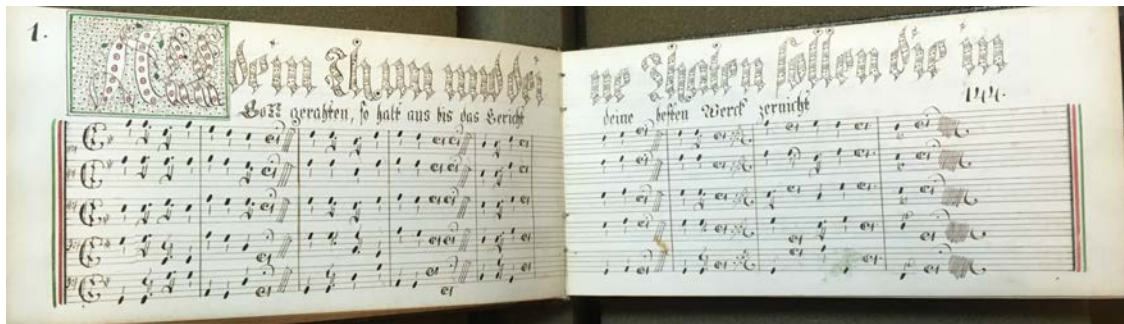 1. All dein Thun und dei ne Thaten sollen die in
GOTT gerahten, so halt aus bis das Gericht deine besten Werck zernicht 144.